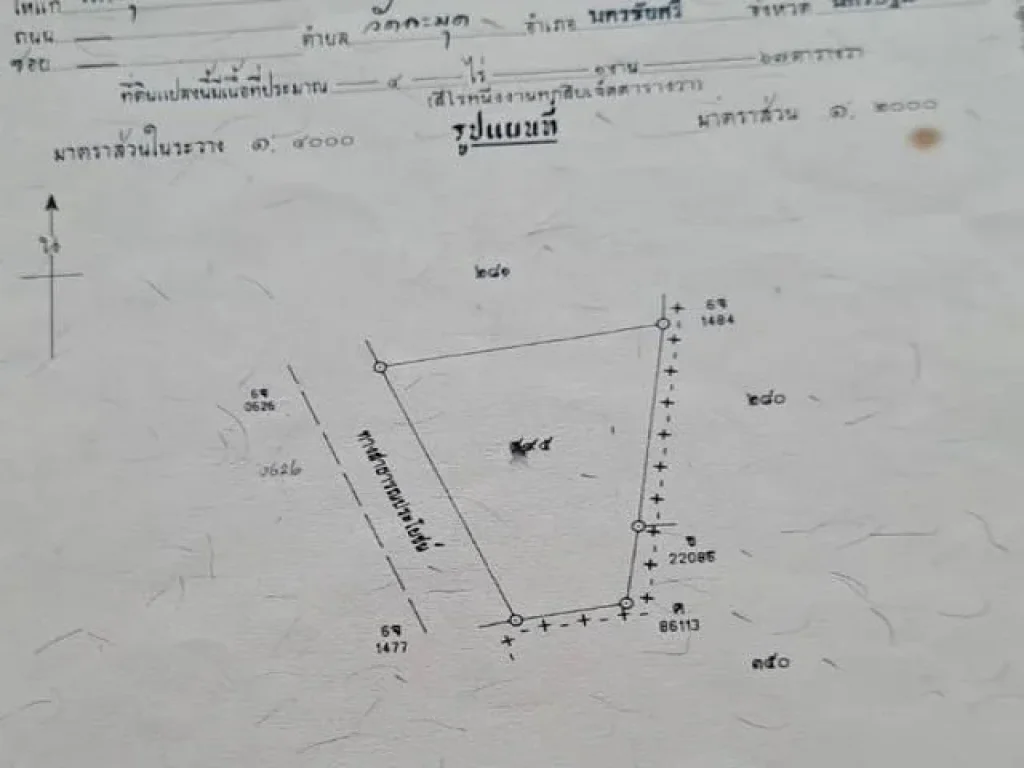 ถนน
ตำบล วัดละมุด อำเภอ นครชัยศรี จังหวัด
ซอย
ที่ดินแปลงนี้มีเนื้อที่ประมาณ ๔ ไร่ ๑ งาน ๖๗ ตารางวา
(สี่ไร่หนึ่งงานหกสิบเจ็ดตารางวา)
มาตราส่วนในระวาง ๑: ๔๐๐๐ รูปแผนที่ มาตราส่วน ๑: ๒๐๐๐
๒๘๑
6จ
1484
6จ
0626
0626
๒๘๐
ทางสาธารณประโยชน์
ข
22086
ค
86113
6จ
1477
๓๕๐